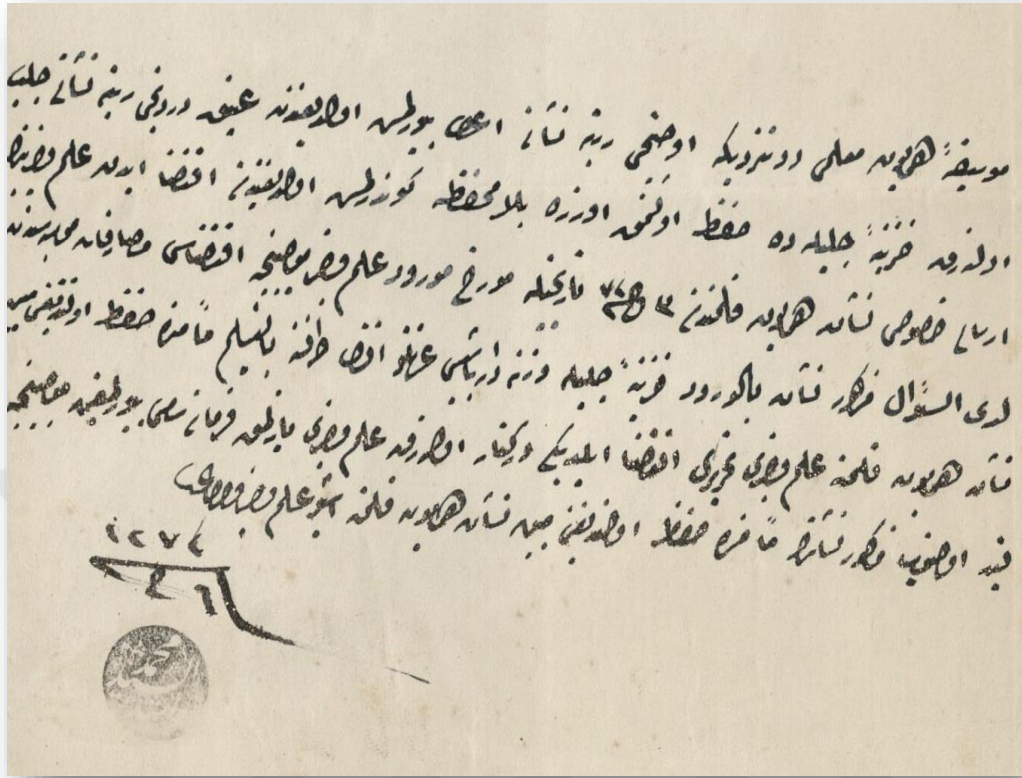 موسيقهٔ همايون معلمى دونزديكه اوچنجى رتبه نشانى اعطا بيورلمش اولديغندن عتيق دردنجى رتبه نشانى جلب
اولنه‌رق خزينهٔ جليله ده حفظ اولنمق اوزره بالمحافظه كوندرلمش اولديغندن اقتضا ايدن علم وخبرينك
ارسالى خصوصى نشان همايون قلمندن ٣ ٧٤ تاريخيله مورخ مورود علم وخبر موجبنجه اقتضاسى
لدى السؤال مذكور نشان بالورود خزينهٔ جليله وزنه دارباشيسى عزتلو افندى طرفنه بالتسليم حفظ اولنديغنى مبين
نشان همايون قلمنه علم وخبرى تحريرى اقتضا ايليه‌جكى دركنار اوله‌رق علم وخبرى يازلمق فرمانى بيورلمغين موجبنجه
قيد اولنوب مذكور نشانك حفظ اولنديغنى مبين نشان همايون قلمنه اشبو علم وخبر
١٢٧٤
٦
محمد